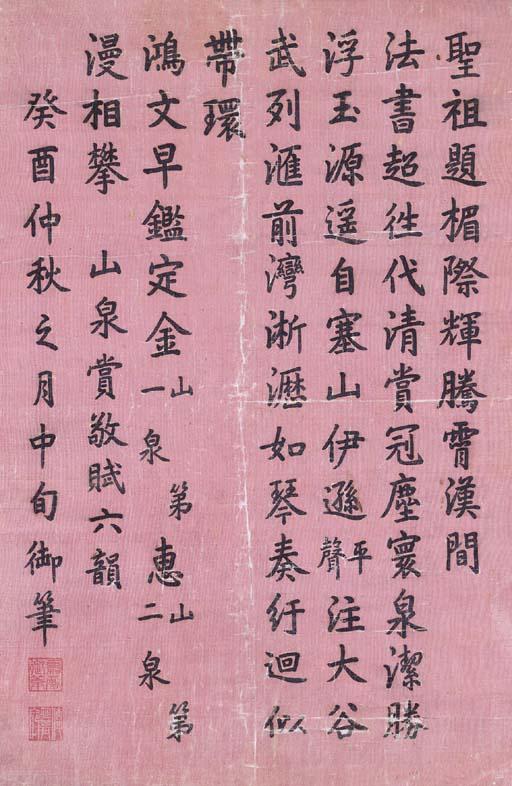 聖祖題楣際輝騰霄漢間
法書超徃代清賞冠塵寰泉潔勝
浮玉源遥自塞山伊遜平聲注大谷
武列滙前灣淅瀝如琴奏紆迴似
帶環
鴻文早鑑定金山第一泉惠山第二泉
漫相攀 山泉賞敬賦六韻
癸酉仲秋之月中旬御筆